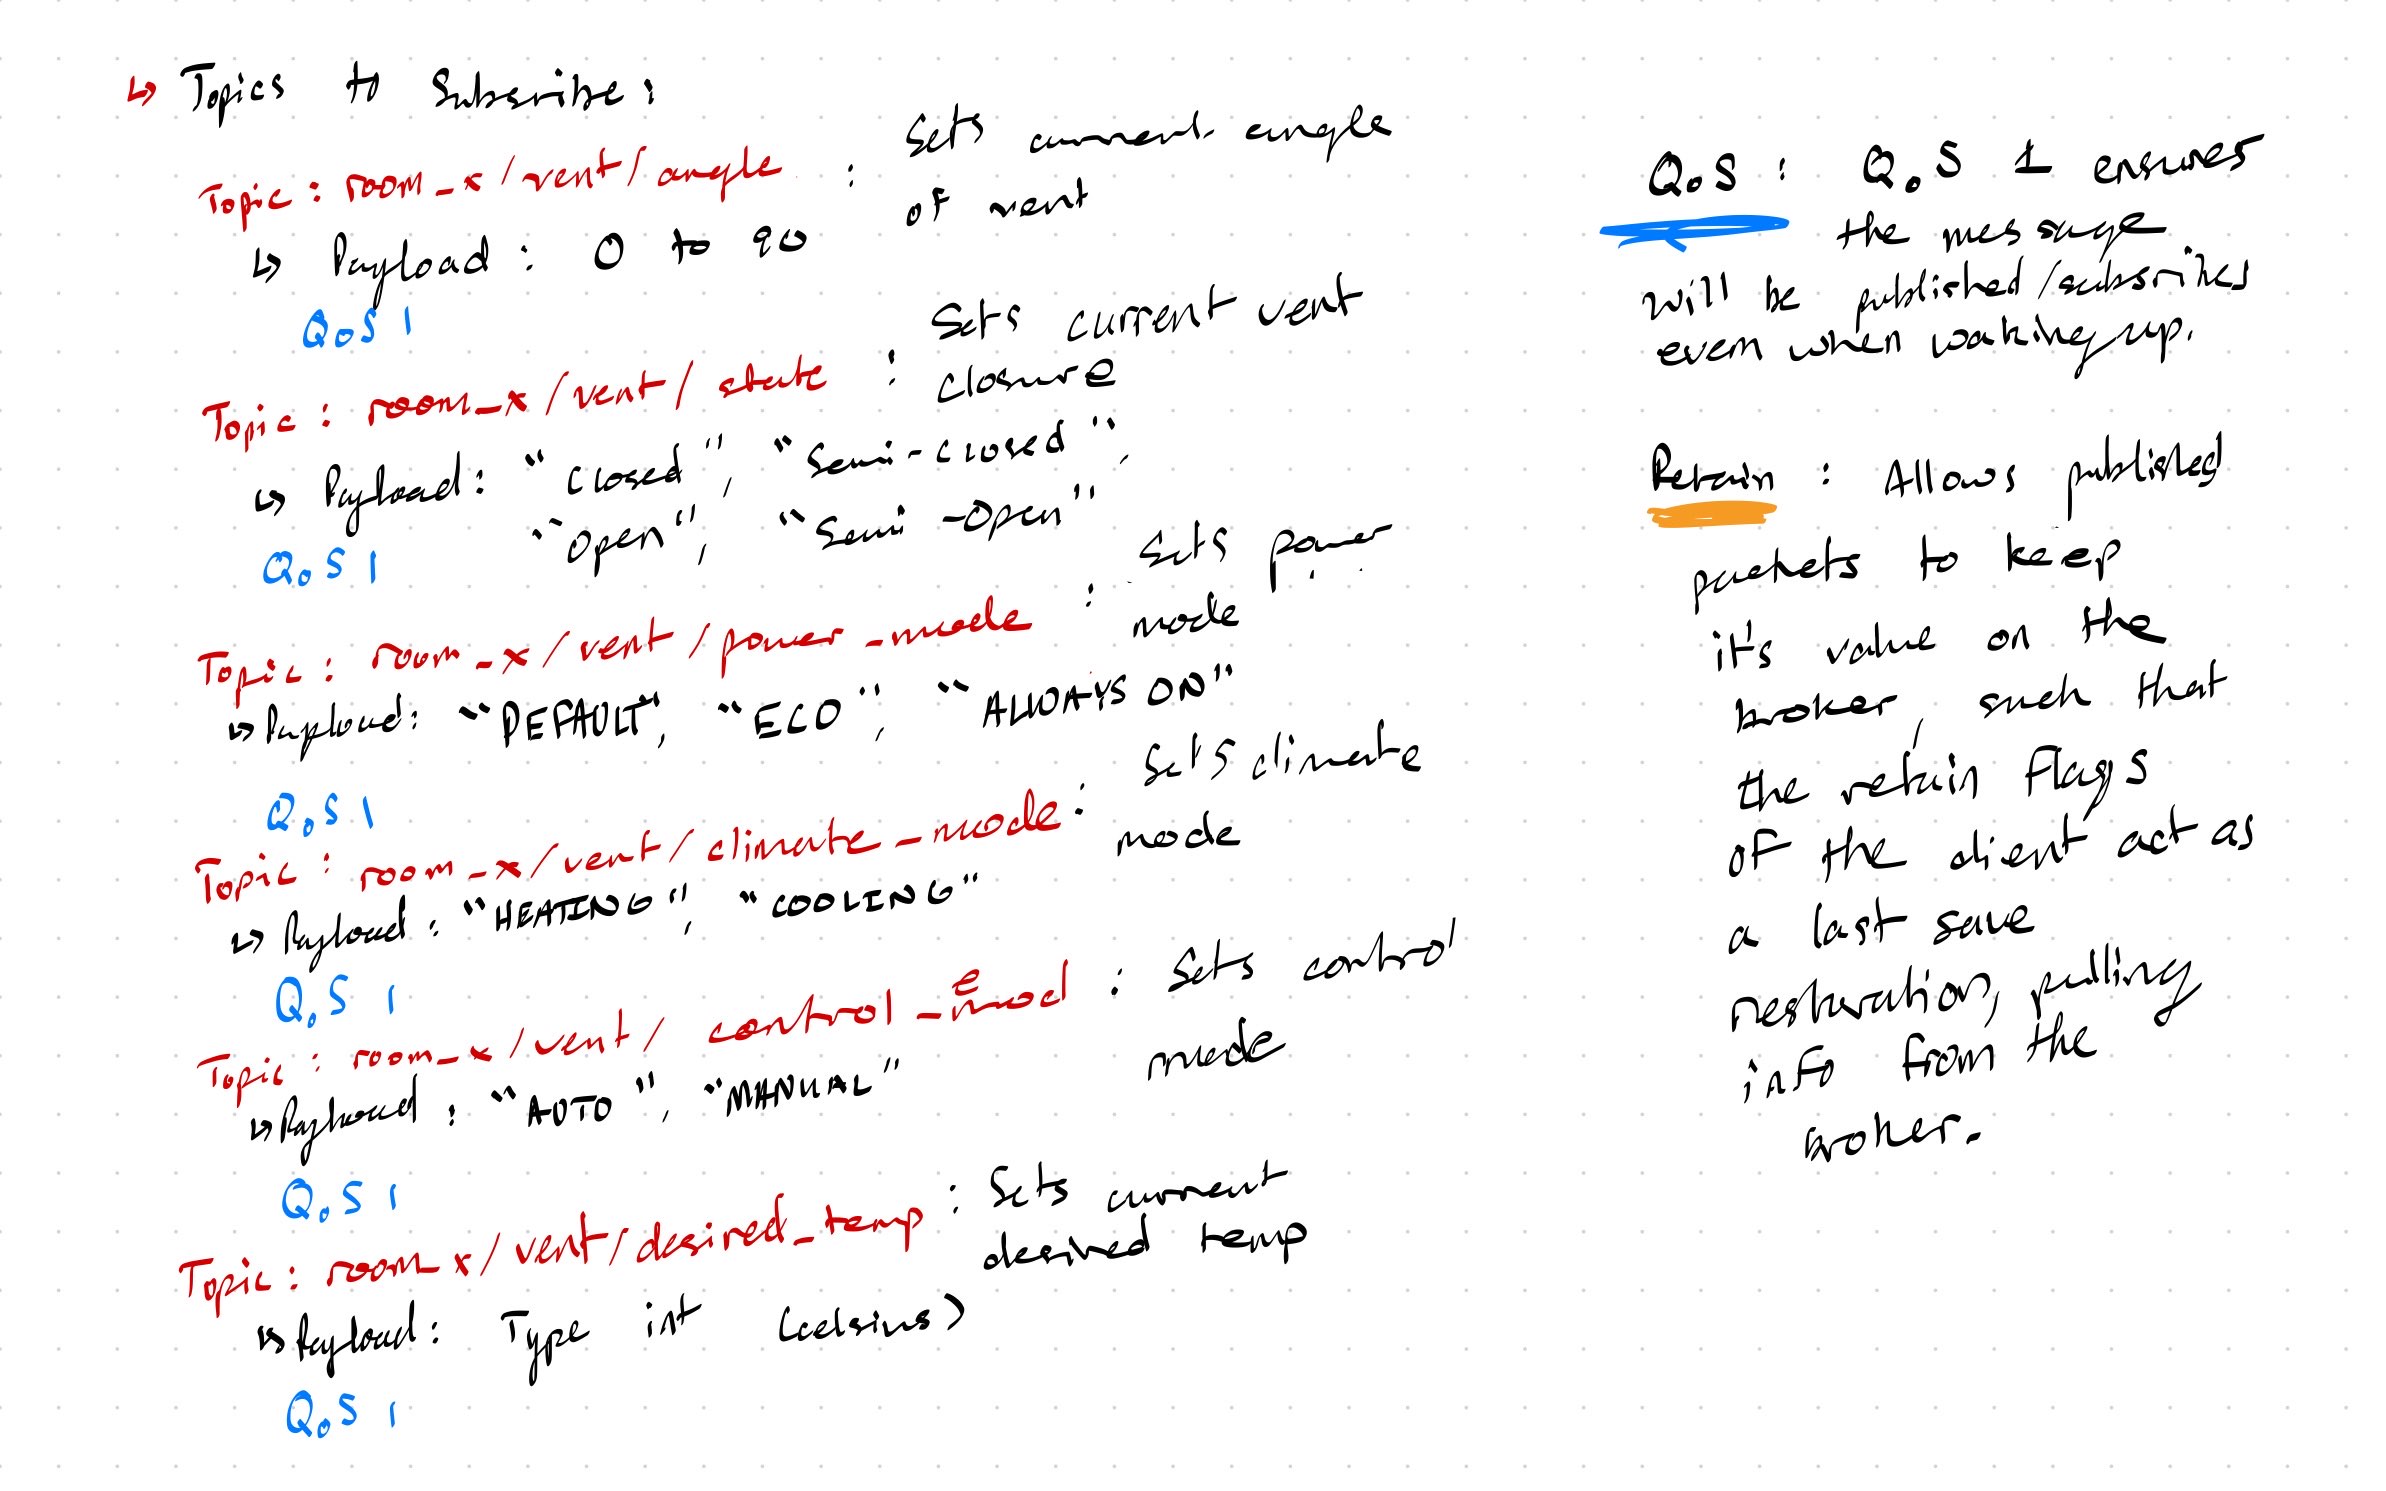 ↳ Topics to Subsribe:
Topic: room_x/vent/angle : Sets current angle
of vent
↳ Payload: 0 to 90
QoS 1
Topic: room_x/vent/state : Sets current vent
closure
↳ Payload: "Closed", "Semi-closed",
"Open", "Semi-Open"
QoS 1
Topic: room_x/vent/power_mode : Sets power
mode
↳ Payload: "DEFAULT", "ECO", "ALWAYS ON"
QoS 1
Topic: room_x/vent/climate_mode: Sets climate
mode
↳ Payload: "HEATING", "COOLING"
QoS 1
Topic: room_x/vent/control_mode : Sets control
mode
↳ Payload: "AUTO", "MANUAL"
QoS 1
Topic: room_x/vent/desired_temp : Sets current
desired temp
↳ Payload: Type int (celsius)
QoS 1
QoS: QoS 1 ensures
the message
will be published/subsribes
even when waking up.
Retain: Allows published
packets to keep
it's value on the
broker, such that
the retain flags
of the client act as
a last save
restoration, pulling
info from the
broker.